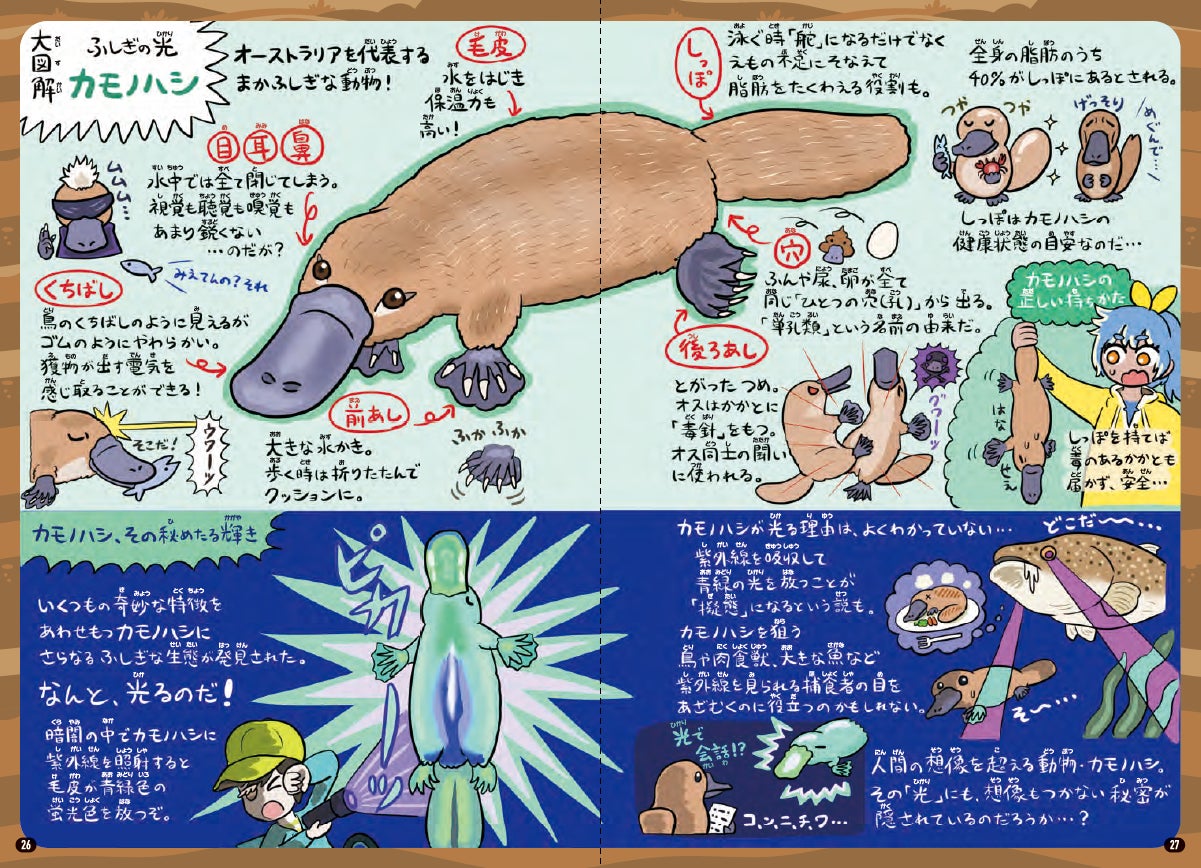 大図解
ふしぎの光
カモノハシ
オーストラリアを代表する
まかふしぎな動物!
毛皮
水をはじき
保温力も
高い!
目 耳 鼻
水中では全て閉じてしまう。
視覚も聴覚も嗅覚も
あまり鋭くない
…のだが?
ムムム…
みえてんの?それ
くちばし
鳥のくちばしのように見えるが
ゴムのようにやわらかい。
獲物が出す電気を
感じ取ることができる!
そこだ!
ウワーッ
前あし
大きな水かき。
歩く時は折りたたんで
クッションに。
ふかふか
しっぽ
泳ぐ時「舵」になるだけでなく
えもの不足にそなえて
脂肪をたくわえる役割も。
全身の脂肪のうち
40%がしっぽにあるとされる。
つや つや
げっそり
めぐんで…
しっぽはカモノハシの
健康状態の目安なのだ…
穴
ふんや尿、卵が全て
同じ「ひとつの穴(孔)」から出る。
「単孔類」という名前の由来だ。
後ろあし
とがったつめ。
オスはかかとに
「毒針」をもつ。
オス同士の闘い
に使われる。
グワーッ
カモノハシの
正しい持ちかた
はな
せえ
しっぽを持てば
毒のあるかかとも
届かず、安全…
カモノハシ、その秘めたる輝き
いくつもの奇妙な特徴を
あわせもつカモノハシに
さらなるふしぎな生態が発見された。
なんと、光るのだ!
暗闇の中でカモノハシに
紫外線を照射すると
毛皮が青緑色の
蛍光色を放つぞ。
ピカーッ
カモノハシが光る理由は、よくわかっていない…
紫外線を吸収して
青緑の光を放つことが
「擬態」になるという説も。
カモノハシを狙う
鳥や肉食獣、大きな魚など
紫外線を見られる捕食者の目を
あざむくのに役立つのかもしれない。
どこだ〜〜…
そ〜…
光で
会話!?
コ、ン、ニ、チ、ワ…
人間の想像を超える動物・カモノハシ。
その「光」にも、想像もつかない秘密が
隠されているのだろうか…?
26
27